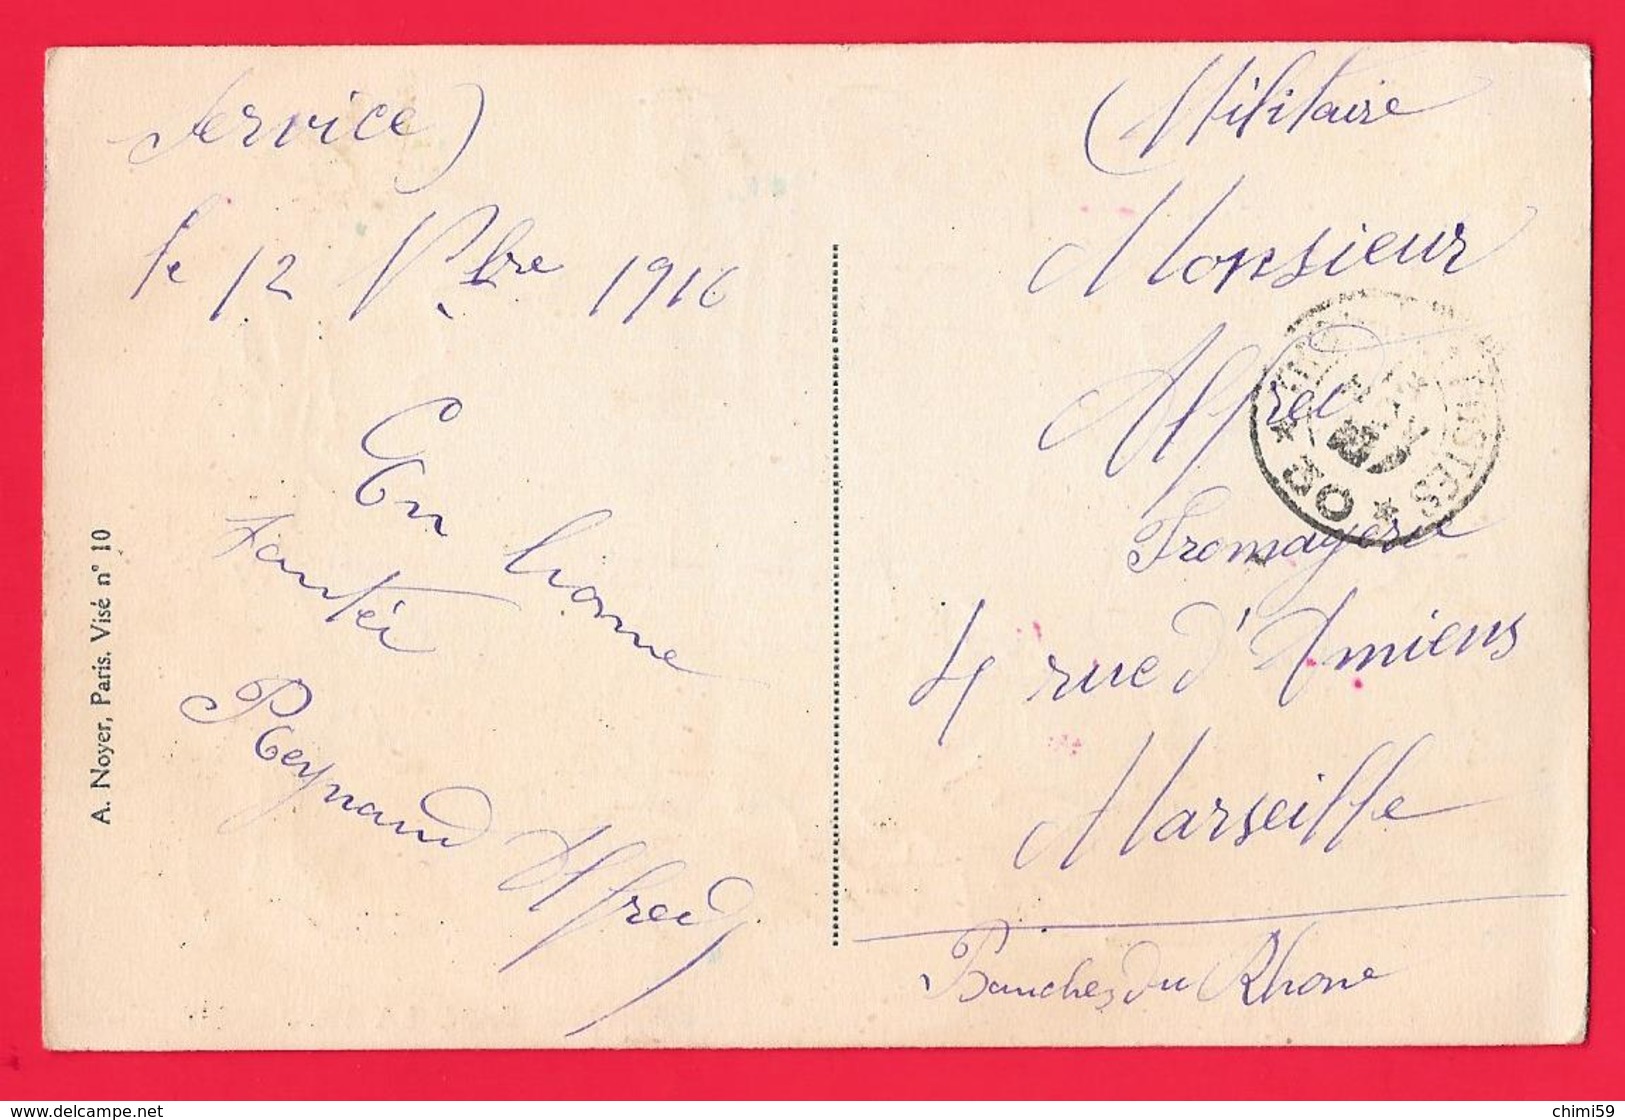 Service)
le 12 Nbre 1916
En bonne
santée
Reynaud Alfred
A. Noyer, Paris. Visé n° 10
(Militaire
Monsieur
Alfred
Fromagerie
4 rue d'Amiens
Marseille
Bouches du Rhone
POSTES
* 30 *
chimi59